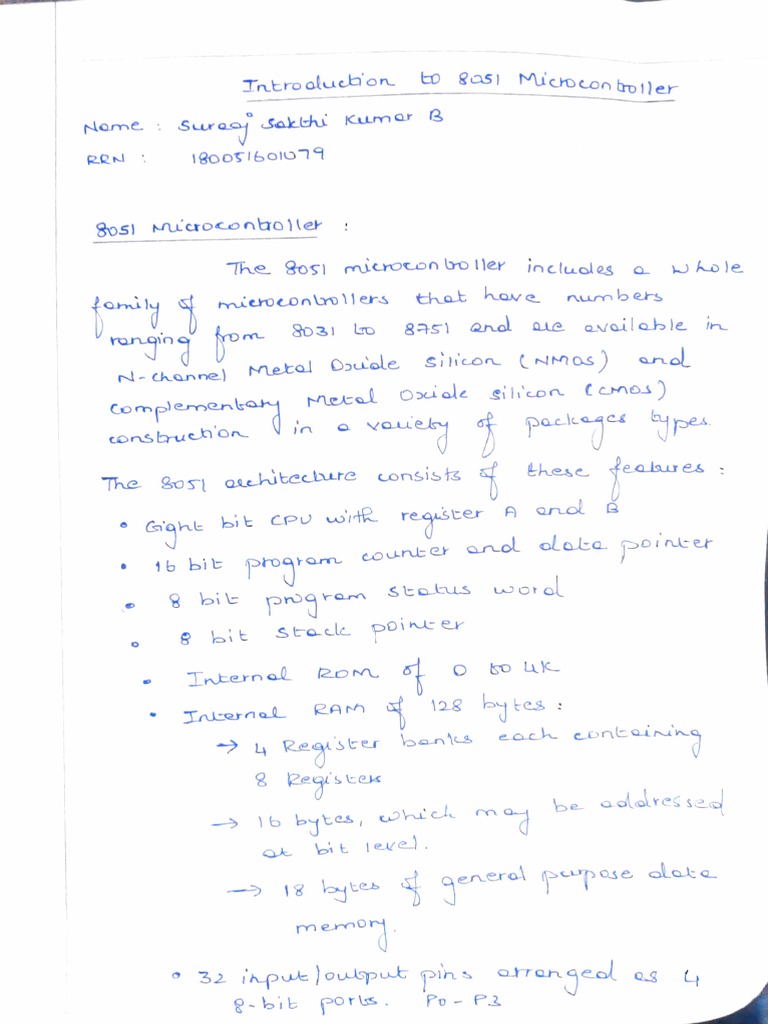 Introduction to 8051 Microcontroller
Name : Suraaj Sakthi Kumar B
RRN : 180051601079
8051 Microcontroller :
The 8051 microcontroller includes a whole
family of microcontrollers that have numbers
ranging from 8031 to 8751 and are available in
N-channel Metal Oxide silicon (NMOS) and
complementary Metal Oxide silicon (CMOS)
construction in a variety of packages types.
The 8051 architecture consists of these features :
• Eight bit CPU with register A and B
• 16 bit program counter and data pointer
• 8 bit program status word
• 8 bit stack pointer
• Internal ROM of 0 to 4K
• Internal RAM of 128 bytes :
→ 4 Register banks each containing
8 Registers
→ 16 bytes, which may be addressed
at bit level.
→ 18 bytes of general purpose data
memory.
• 32 input/output pins arranged as 4
8-bit ports. P0 - P3